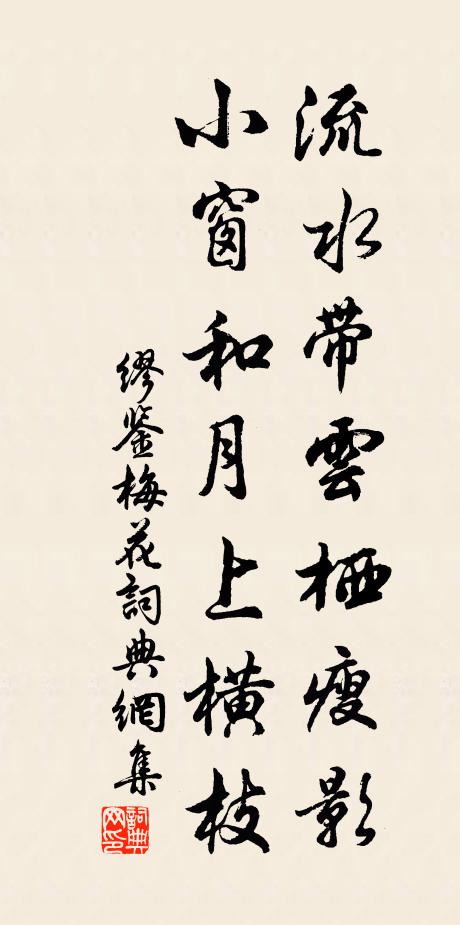 流水带雲栖瘦影
小窗和月上横枝
缪鉴梅花詞典網集
詞典网印